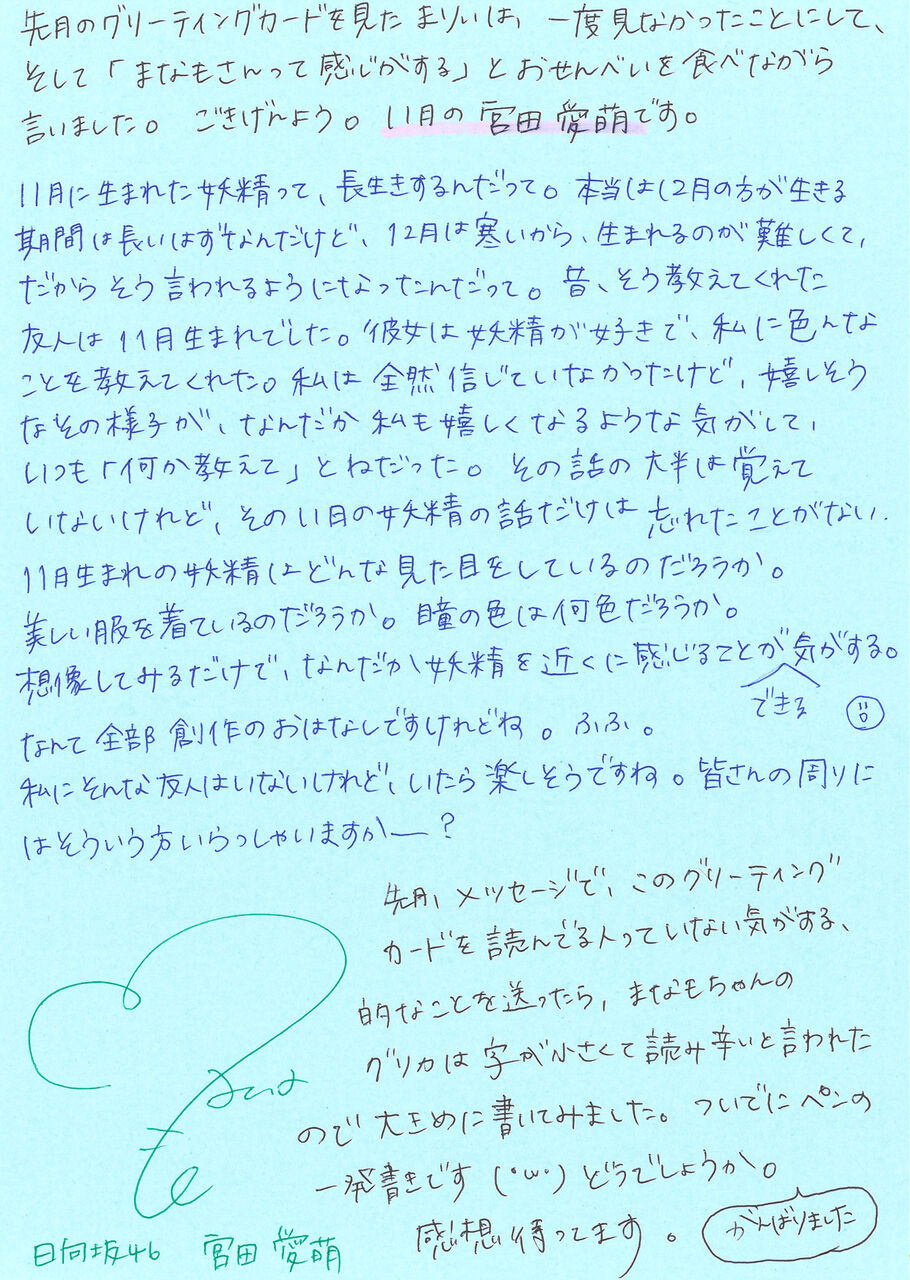 先月のグリーティングカードを見た まりぃは、一度見なかったことにして、
そして「まなもさんって感じがする」とおせんべいを食べながら
言いました。ごきげんよう。11月の 宮田 愛萌です。
11月に生まれた妖精って、長生きするんだって。本当は12月の方が生きる
期間は長いはずなんだけど、12月は寒いから、生まれるのが難しくて、
だからそう言われるようになったんだって。昔、そう教えてくれた
友人は11月生まれでした。彼女は妖精が好きで、私に色んな
ことを教えてくれた。私は全然信じていなかったけど、嬉しそう
なその様子が、なんだか私も嬉しくなるような気がして、
いつも「何か教えて」とねだった。その話の大半は覚えて
いないけれど、その11月の妖精の話だけは忘れたことがない.
11月生まれの妖精はどんな見た目をしているのだろうか。
美しい服を着ているのだろうか。瞳の色は何色だろうか。
想像してみるだけで、なんだか妖精を近くに感じることが気がする。
できる
なんて全部創作のおはなしですけれどね。ふふ。
私にそんな友人はいないけれど、いたら楽しそうですね。皆さんの周りに
はそういう方いらっしゃいますかー?
先月、メッセージで、このグリーティング
カードを読んでる人っていない気がする、
的なことを送ったら、まなもちゃんの
グリカは字が小さくて読み辛いと言われた
ので大きめに書いてみました。ついでにペンの
一発書きです(・ω・)どうでしょうか。
感想待ってます。
がんばりました
まなも
日向坂46 宮田 愛萌